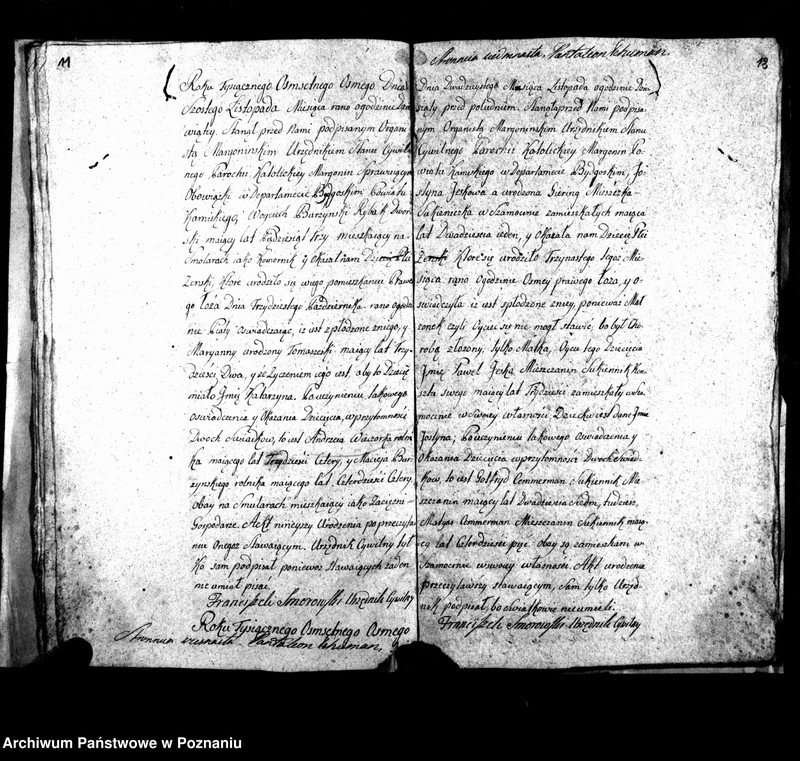 11
Roku Tysiącznego Osmsetnego Osmego Dnia
Szostego Listopada Miesiąca rano ogodzinie Dzie
wiątey. Stanął przed Nami podpisanym Organi
stą Margoninskim Urzędnikiem Stanu Cywil
nego Parochii Katolickiey Margonin Sprawuiącym
Obowiązki w Departamencie Bydgoskim Powiatu
Kaminskiego, Woyciech Barzynski Rybak Dwor
ski maiący lat Pędziesiąt Trzy mieszkaiący na
Smolarach iako Komornik y okazał nam Dziecię Płci
Zenski, Ktore urodziło się w iego pomieszkaniu Prawe
go Łoza Dnia Trzydziestego Pazdziernika rano ogodzi
nie Piąty oswiadczaiąc, iz iest zpłodzone zniego, y
Maryanny urodzony Tomaszeski maiący lat Trzy-
dziesci Dwa, y ze Zyczeniem iego iest, aby to Dziecię
miało Jmię Katarzyna. Po uczynieniu takowego
oswiadczenia y Okazania Dziecięcia, w przytomnosci
Dwoch Swiadkow, to iest Andrzeia Wieczorka rolni
ka maiącego lat Trzydziesci Cztery, y Macieja Bar
zynskiego rolnika maiącego lat Czterdziesci Cztery,
Obay na Smularach mieszkaiący iako Zaciężni
Gospodarze. Akt ninieyszy Urodzenia po przeczyta
niu Onegoz Stawaiącym. Urzędnik Cywilny tyl
ko sam podpisał poniewoz Stawaiących zaden
nie umiał pisać.
Franciszek Smorowski Urzędnik Cywilny
Roku Tysiącznego Osmsetnego Osmego
Pantaleon Schuman
Pantaleon Schuman
13
Dnia Dwudziestego Miesiąca Listopada ogodzinie Dzie
siąty przed południem. Stanęła przed Nami podpisa
nym Organistą Margoninskim Urzędnikiem Stanu
Cywilnego Parochii Katolickiey Margonin Po
wiatu Kaminskiego w Departamencie Bydgoskim, Jo
styna Jeskowa a urodzona Giering Mieszczka
Sukienniczka w Szamocinie zamieszkałych maiąca
lat Dwadziescia ieden, y Okazała nam Dziecię Płci
Zenski Ktore się urodziło Trzynastego tegoz Mie
siąca rano Ogodzinie Osmey prawego łoza, y o-
swiadczyła iz iest spłodzone zniey, poniewaz Mał
zonek czyli Oyciec się nie mogł stawić, bo był Cho
robą złozony, tylko Matka, Oyca tego Dziecięcia
Jmię Paweł Jeska Mieszczanin Sukiennik
swego maiący lat Trzydziesci zamieszkały w Sza
mocinie w swoiey własnosci Dziecku iest dane Jmie
Jostyna; Po uczynieniu takowego oswiadczenia y
Okazania Dziecięcia w przytomnosci Dwoch Swiad
kow, to iest Gotfryd Cemmerman Sukiennik Mie
szczanin maiący lat Dwadziescia Siedm, tudziesz
Matyas Cemmerman Mieszczanin Sukiennik maią
cy lat Czterdziesci pięć. Obay są zamieszkani w
Szamocinie w swoiey własnosci. Akt urodzenia
przeczytawszy stawaiącym, sam tylko Urzęd
nik podpisał, bo swiadkowie nie umieli.
Franciszek Smorowski Urzędnik Cywilny
Archiwum Państwowe w Poznaniu